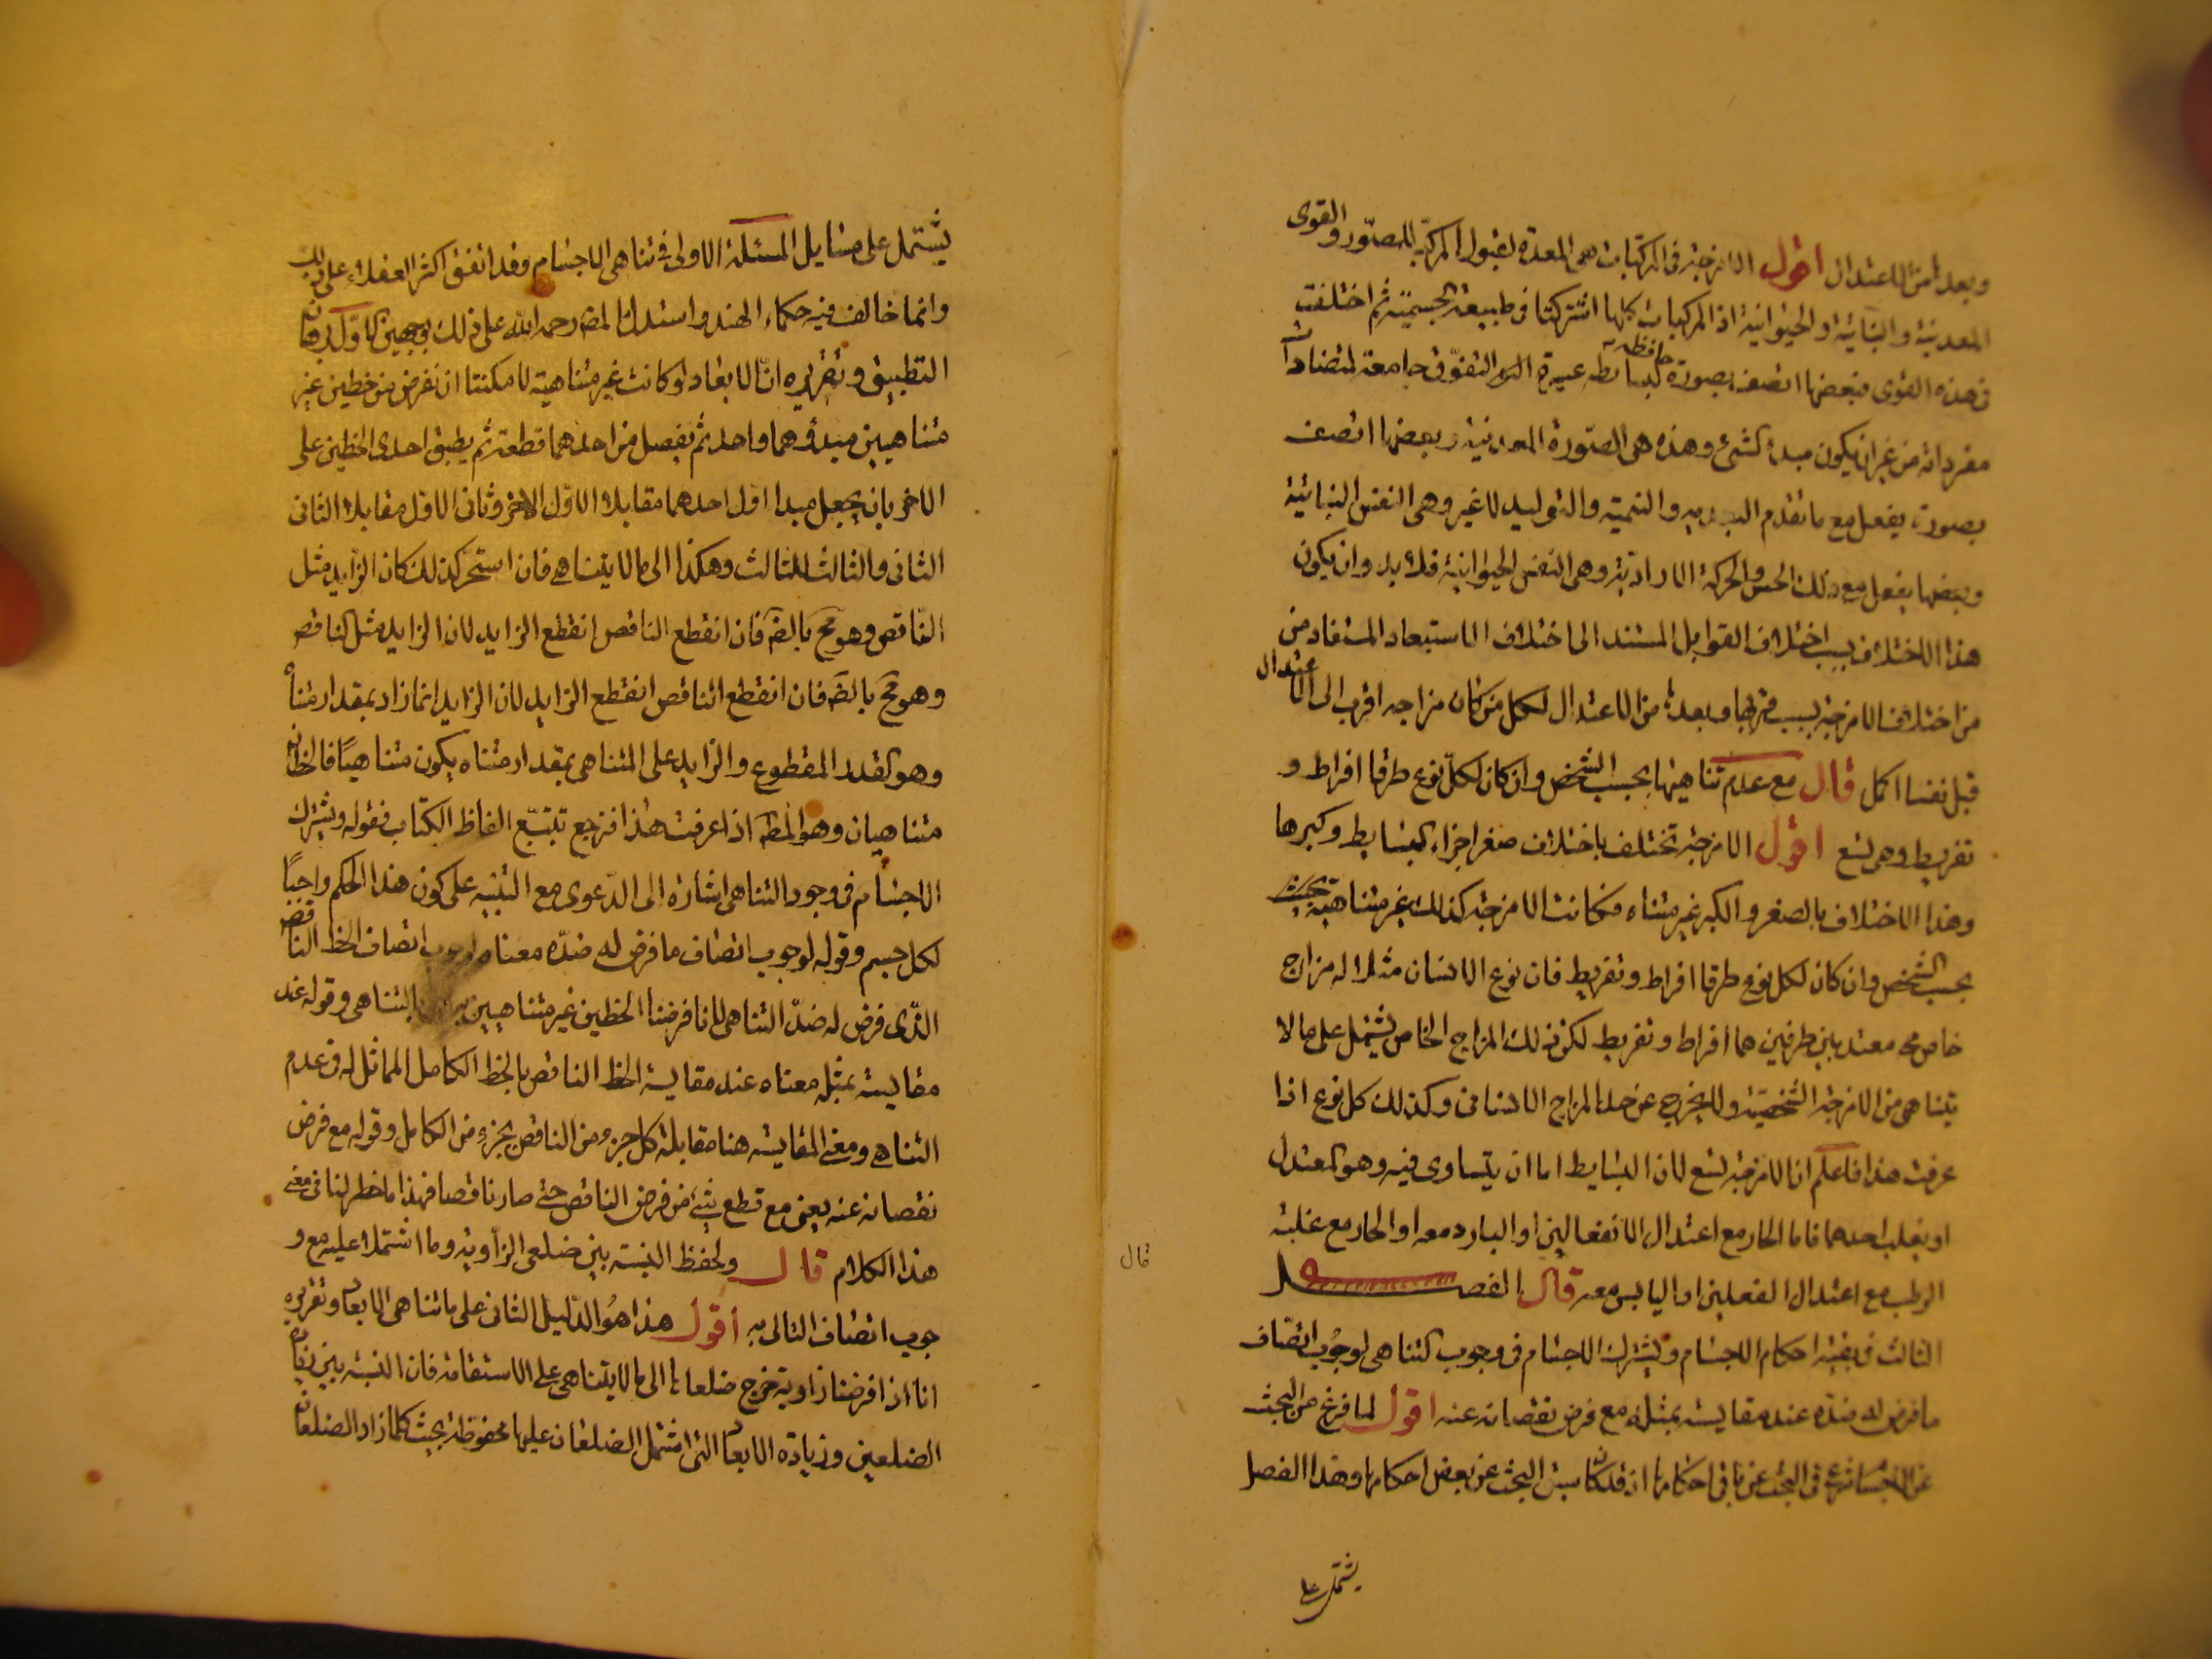 وبعدها من الاعتدال اقول الامزجة فى المركبات هى المعدة لقبول المركب للصور والقوى
المعدنية والنباتية والحيوانية اذ المركبات كلها اشتركت فى طبيعة الجسمية ثم اختلفت
فى هذه القوى فبعضها اتصف بصورة حافظة لبسائطه عن التفرق جامعة لمتضادات
مفرداته من غير ان يكون مبدأ لشىء وهذه هى الصورة المعدنية وبعضها اتصف
بصورة يفعل مع ما تقدم التغذية والتنمية والتوليد لا غير وهى النفس النباتية
وبعضها يفعل مع ذلك الحس والحركة الارادية وهى النفس الحيوانية فلا بد وان يكون
هذا الاختلاف بسبب اختلاف القوابل المستند الى اختلاف الاستعداد المستفاد من
من اختلاف الامزجة بسبب قربها وبعدها من الاعتدال لكل من كان مزاجه اقرب الى الاعتدال
قبل نفسا اكمل قال مع عدم تناهيها بحسب الشخص وان كان لكل نوع طرفا افراط و
تفريط وهى تسع اقول الامزجة تختلف باختلاف صغر اجزاء البسايط وكبرها
وهذا الاختلاف بالصغر والكبر غير متناه فكانت الامزجة كذلك غير متناهية بحسب
بحسب الشخص وان كان لكل نوع طرفا افراط وتفريط فان نوع الانسان مثلا له مزاج
خاص معتد بين طرفين هما افراط وتفريط لكن ذلك المزاج الخاص يشتمل على ما لا
يتناهى من الامزجة الشخصية ولا يخرج عن حد المزاج الانسانى وكذلك كل نوع اذا
عرفت هذا فاعلم ان الامزجة تسع لان البسايط اما ان يتساوى فيه وهو المعتدل
او يغلب احدهما فاما الحار مع اعتدال الانفعالين او البارد معه او الحار مع غلبة
الرطب مع اعتدال الفعلين او اليابس معه قال الفصل
الثالث فى بقية احكام الاجسام ويشترك الاجسام فى وجوب التناهى لوجوب اتصاف
ما فرض له ضده عند مقايسته بمثله مع فرض نقصانه عنه اقول لما فرغ من البحث
عن الاجسام شرع فى البحث عن باقى احكامها اذ قد كان سبق البحث عن بعض احكامها وهذا الفصل
يشتمل على
قال
يشتمل على مسايل المسئلة الاولى فى تناهى الاجسام وقد اتفق اكثر العقلاء على ذلك
وانما خالف فيه حكماء الهند واستدل المص رحمه الله على ذلك بوجهين الاول برهان
التطبيق وتقريره ان الابعاد لو كانت غير متناهية لامكننا ان نفرض من خطين غير
متناهيين مبدؤهما واحد ثم نفصل من احدهما قطعة ثم يطبق احدى الخطين على
الاخر بان يجعل مبدا اول احدهما مقابلا الاول الاخر وثانى الاول مقابلا الثانى
الثانى والثالث للثالث وهكذا الى ما لا يتناهى فان استمر كذلك كان الزايد مثل
الناقص وهو مح بالضرة فان انقطع الناقص انقطع الزايد لان الزايد مثل الناقص
وهو مح بالضرة فان انقطع الناقص انقطع الزايد لان الزايد انما زاد بمقدار متناه
وهو القدر المقطوع والزايد على المتناهى بمقدار متناه يكون متناهيًا فالخطان
متناهيان وهو المط اذا عرفت هذا فنرجع تتبّع الفاظ الكتاب فقوله ويشترك
الاجسام فى وجود التناهى اشارة الى الدعوى مع التنبيه على كون هذا الحكم واجبًا
لكل جسم وقوله لوجوب اتصاف ما فرض له ضدّه معناه لوجوب اتصاف الخط الناقص
الذى فرض له ضدّ التناهى لانا فرضنا الخطين غير متناهيين بالتناهى وقوله عند
مقايسته بمثله معناه عند مقايسة الخط الناقص بالخط الكامل المماثل له فى عدم
التناهى ومعنى المقايسة هنا مقابلة كل جزء من الناقص بجزء من الكامل وقوله مع فرض
نقصانه عنه يعنى مع قطع شىء من فرض الناقص حتى صار ناقصا فهذا ما خطر لنا فى معنى
هذا الكلام قال ولحفظ النسبة بين ضلعى الزاوية وما اشتملا عليه مع و
جوب اتصاف الثانى به أقول هذا هُو الدّليل الثانى على ما تناهى الابعاد وتقريره
انا اذا فرضنا زاوية خرج ضلعاها الى ما لا يتناهى على الاستقامة فان النسبة بين زيادة
الضلعين وزيادة الابعاد التى اشتمل الضلعان عليها محفوظة بحيث كلما زاد الضلعان